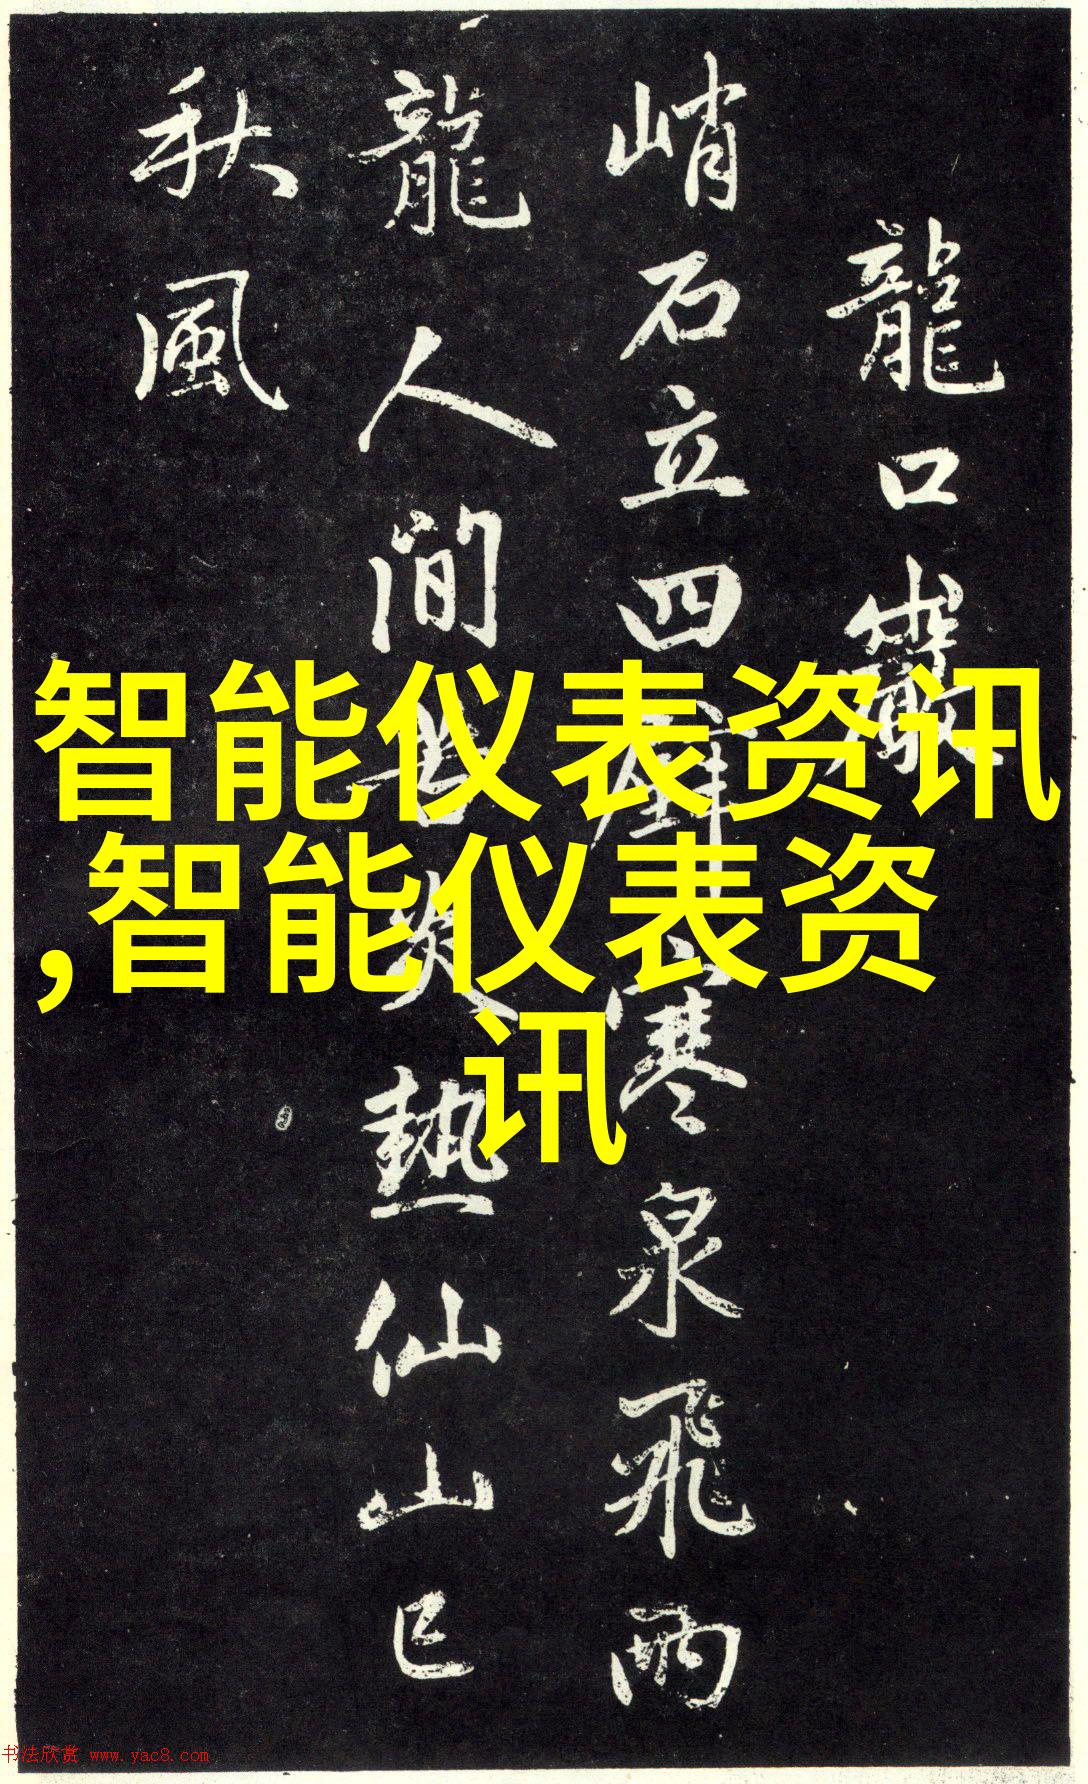 龍口巖
峭石立四壁寒泉飛兩
龍人間苦炎熱仙山已
秋風
智能仪表资讯
,智能仪表资
讯
书法欣赏 www.yac8.com